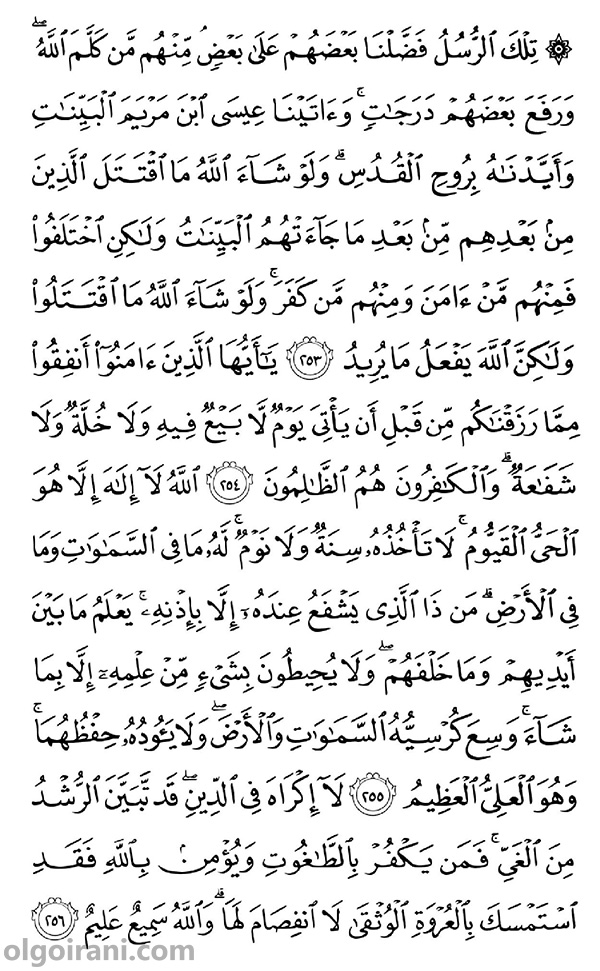 ۞ تِلْكَ ٱلرُّسُلُ فَضَّلْنَا بَعْضَهُمْ عَلَىٰ بَعْضٍ مِّنْهُم مَّن كَلَّمَ ٱللَّهُ ۖ
وَرَفَعَ بَعْضَهُمْ دَرَجَٰتٍ ۚ وَءَاتَيْنَا عِيسَى ٱبْنَ مَرْيَمَ ٱلْبَيِّنَٰتِ
وَأَيَّدْنَٰهُ بِرُوحِ ٱلْقُدُسِ ۗ وَلَوْ شَآءَ ٱللَّهُ مَا ٱقْتَتَلَ ٱلَّذِينَ
مِنۢ بَعْدِهِم مِّنۢ بَعْدِ مَا جَآءَتْهُمُ ٱلْبَيِّنَٰتُ وَلَٰكِنِ ٱخْتَلَفُوا۟
فَمِنْهُم مَّنْ ءَامَنَ وَمِنْهُم مَّن كَفَرَ ۚ وَلَوْ شَآءَ ٱللَّهُ مَا ٱقْتَتَلُوا۟
وَلَٰكِنَّ ٱللَّهَ يَفْعَلُ مَا يُرِيدُ ٢٥٣ يَٰٓأَيُّهَا ٱلَّذِينَ ءَامَنُوٓا۟ أَنفِقُوا۟
مِمَّا رَزَقْنَٰكُم مِّن قَبْلِ أَن يَأْتِىَ يَوْمٌ لَّا بَيْعٌ فِيهِ وَلَا خُلَّةٌ وَلَا
شَفَٰعَةٌ ۗ وَٱلْكَٰفِرُونَ هُمُ ٱلظَّٰلِمُونَ ٢٥٤ ٱللَّهُ لَآ إِلَٰهَ إِلَّا هُوَ
ٱلْحَىُّ ٱلْقَيُّومُ ۚ لَا تَأْخُذُهُۥ سِنَةٌ وَلَا نَوْمٌ ۚ لَّهُۥ مَا فِى ٱلسَّمَٰوَٰتِ وَمَا
فِى ٱلْأَرْضِ ۗ مَن ذَا ٱلَّذِى يَشْفَعُ عِندَهُۥٓ إِلَّا بِإِذْنِهِۦ ۚ يَعْلَمُ مَا بَيْنَ
أَيْدِيهِمْ وَمَا خَلْفَهُمْ ۖ وَلَا يُحِيطُونَ بِشَىْءٍ مِّنْ عِلْمِهِۦٓ إِلَّا بِمَا
شَآءَ ۚ وَسِعَ كُرْسِيُّهُ ٱلسَّمَٰوَٰتِ وَٱلْأَرْضَ ۖ وَلَا يَـُٔودُهُۥ حِفْظُهُمَا ۚ
وَهُوَ ٱلْعَلِىُّ ٱلْعَظِيمُ ٢٥٥ لَآ إِكْرَاهَ فِى ٱلدِّينِ ۖ قَد تَّبَيَّنَ ٱلرُّشْدُ
مِنَ ٱلْغَىِّ ۚ فَمَن يَكْفُرْ بِٱلطَّٰغُوتِ وَيُؤْمِنۢ بِٱللَّهِ فَقَدِ
ٱسْتَمْسَكَ بِٱلْعُرْوَةِ ٱلْوُثْقَىٰ لَا ٱنفِصَامَ لَهَا ۗ وَٱللَّهُ سَمِيعٌ عَلِيمٌ ٢٥٦
olgoirani.com